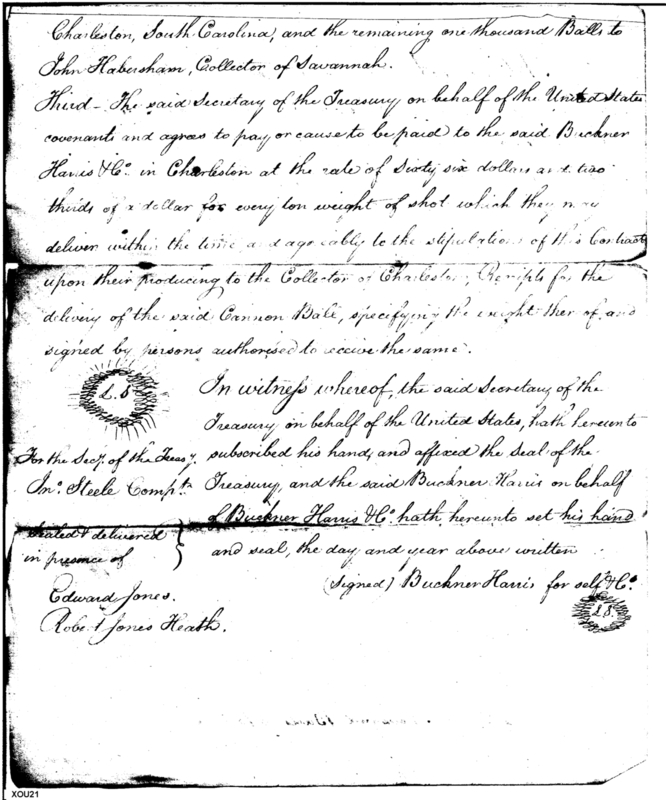 Charleston, South Carolina, and the remaining one thousand Balls to
John Habersham, Collector of Savannah.
Third - The said Secretary of the Treasury on behalf of the United States
covenants and agrees to pay or cause to be paid to the said Buckner
Harris & Co. in Charleston at the rate of Sixty six dollars and two
thirds of a dollar for every ton weight of shot which they may
deliver within the time and agreeably to the stipulations of this Contract
upon their producing to the Collector of Charleston, Receipts for the
delivery of the said Cannon Ball, specifying the weight thereof, and
signed by persons authorised to receive the same.
L. S
In witness whereof, the said Secretary of the
Treasury on behalf of the United States, hath hereunto
subscribed his hand, and affixed the Seal of the
Treasury, and the said Buckner Harris on behalf
of Buckner Harris & Co. hath hereunto set his hand
and seal, the day and year above written
For the Secy. of the Treasy.
Jno. Steele Compt.
Sealed & delivered
in presence of
Edward Jones.
Robert Jones Heath.
(Signed) Buckner Harris for self & Co.
L. S.
XOU21